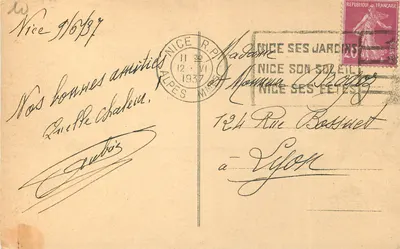 Nice 9/6/37
Nos bonnes amitiés
Quelle chaleur.
NICE R.P.
12 - VI
1937
ALPES MMES
NICE SES JARDINS
NICE SON SOLEIL
NICE SES FÊTES
REPUBLIQUE FRANÇAISE
Madame
et Monsieur
124 Rue Bossuet
à Lyon